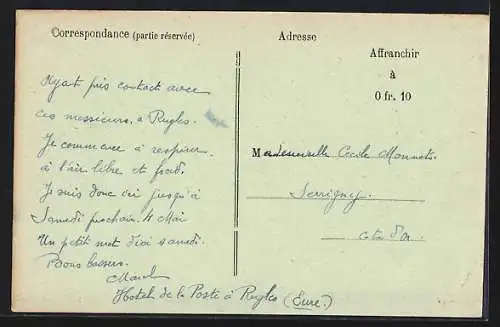 Correspondance (partie réservée)
Ayant pris contact avec
ces messieurs, à Rugles.
Je commence à respirer
à l'air libre et froid.
Je suis donc ici jusqu'à
Samedi prochain 4 Mai
Un petit mot d'ici samedi.
Bons baisers.
Marcel
Hotel de la Poste à Rugles (Eure)
Adresse
Affranchir
à
0 fr. 10
Mademoiselle Cecile
Serrigny
Cote d'Or